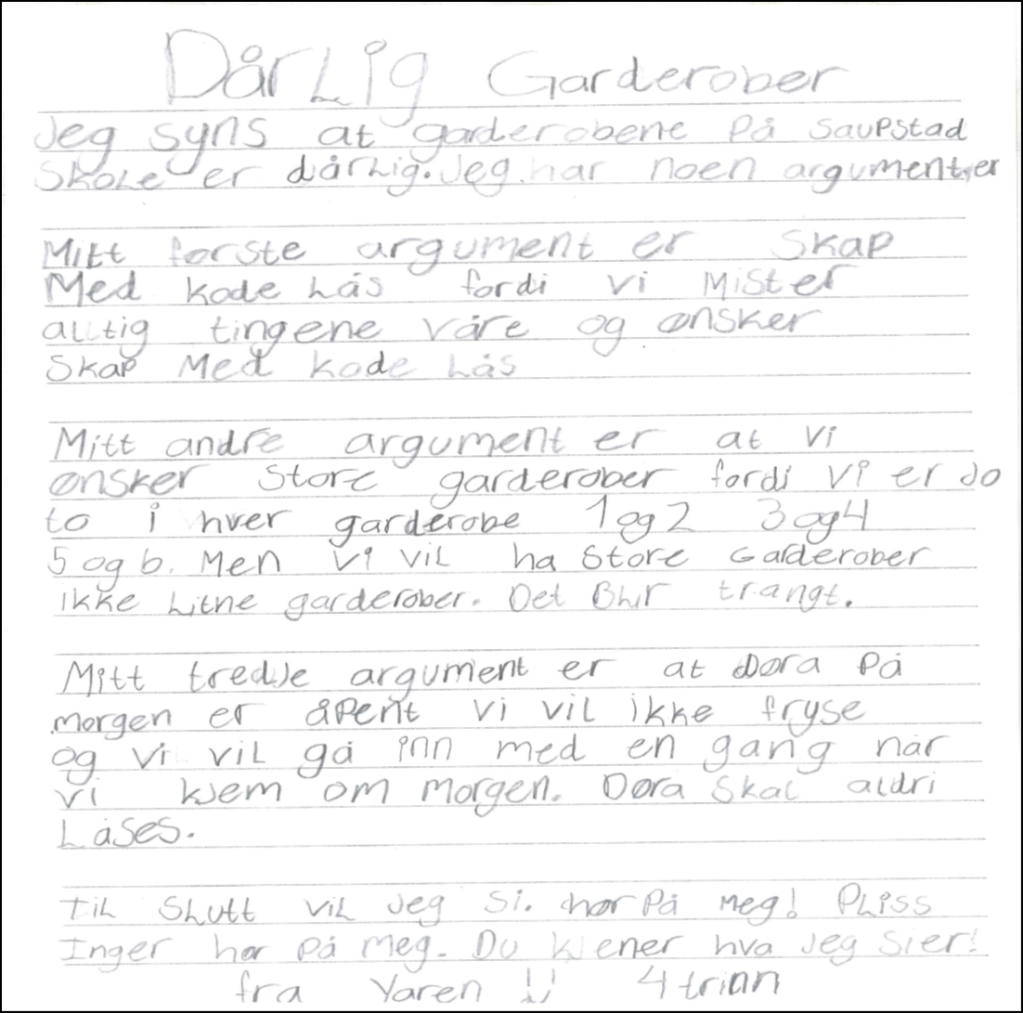 Dårlig Garderober
Jeg syns at garderobene på saupstad
skole er dårlig. Jeg har noen argumenter
Mitt første argument er skap
Med kode lås fordi vi Mister
alltig tingene våre og ønsker
skap Med kode lås
Mitt andre argument er at vi
ønsker store garderober fordi vi er jo
to i hver garderobe 1 og 2 3 og 4
5 og 6. Men vi vil ha store Garderober
ikke litne garderober. Det Blir trangt.
Mitt tredje argument er at Døra på
morgen er åpent vi vil ikke fryse
og vi vil gå inn med en gang når
vi kjem om morgen. Døra skal aldri
Låses.
Til slutt vil jeg si. hør på meg! Pliss
Inger hør på meg. Du kjener hva jeg sier!
fra Yaren !! 4 trinn